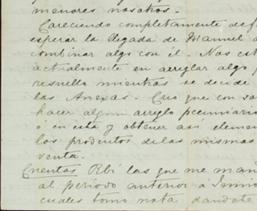 menores nosotros.
Careciendo completamente de f
esperar la llegada de Manuel a
combinar algo con él. Nos est
actualmente en arreglar algo p
resuelto mientras se decide
las Anexas. Creo que con
hacer algun arreglo pecuniario
o en esta y obtener asi elemen
los productos de las mismas
venta.
Cuentas Rbi las que me man
al período anterior a
cuales tomo nota, dandote